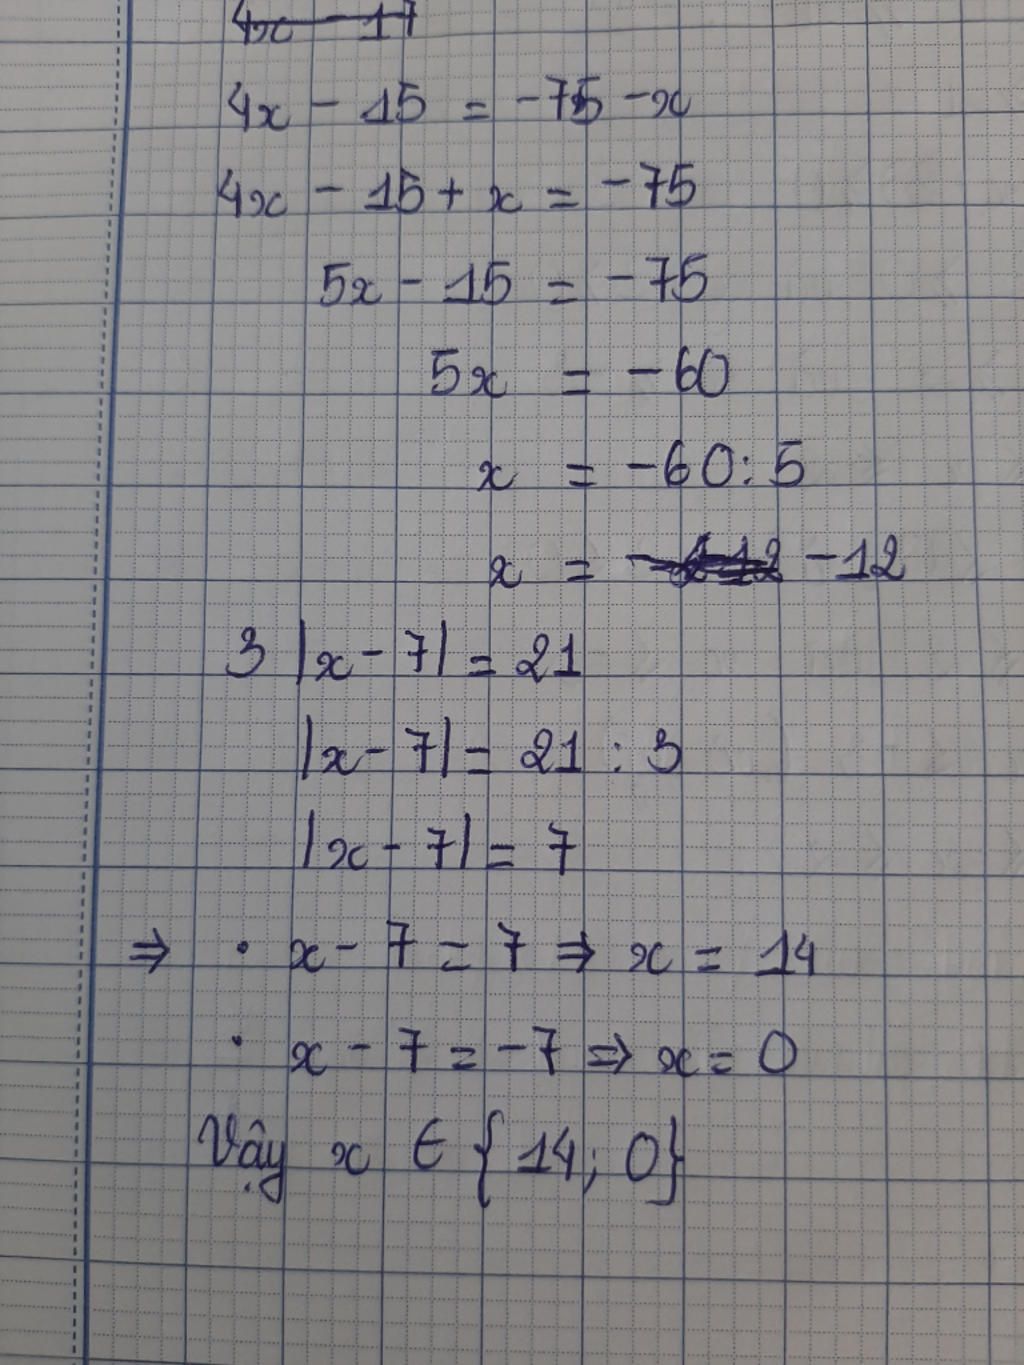 4x - 17
4x - 15 = -75 - x
4x - 15 + x = -75
5x - 15 = -75
5x = -60
x = -60 : 5
x = -12
3 |x - 7| = 21
|x - 7| = 21 : 3
|x - 7| = 7
⇒ · x - 7 = 7 ⇒ x = 14
· x - 7 = -7 ⇒ x = 0
Vậy x ∈ {14; 0}